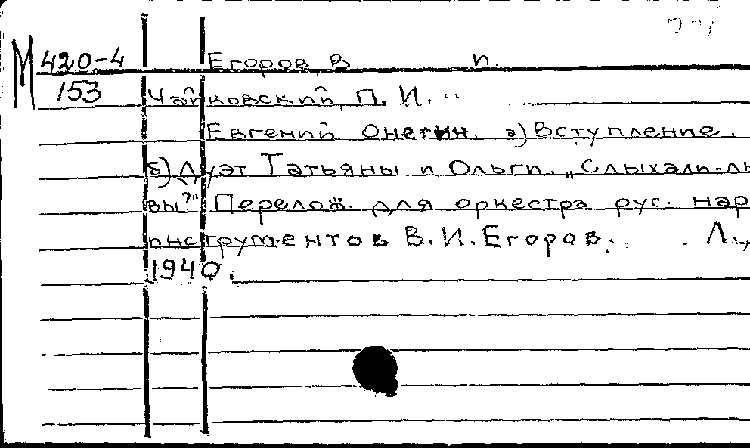 М 420-4 Егоров, В п.
153 Чайковский, П. И.
Евгений Онегин. а) Вступление.
б) Дуэт Татьяны и Ольги „Слыхали-ль
вы?" Перелож. для оркестра рус. нар
инструментов В. И. Егоров. Л.,
1940.